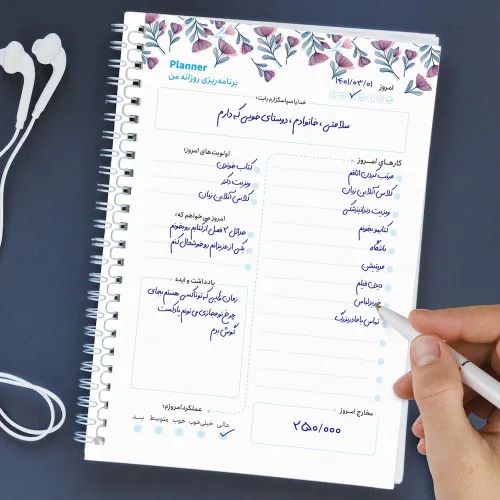 Planner
برنامه‌ریزی روزانه من
امروز ۱۴۰۱/۰۳/۰۱
خدایا سپاسگزارم بابت:
سلامتی، خانوادم، دوستای خوبی که دارم
اولویت‌های امروز:
کتاب خوندن
ویزیت دکتر
کلاس آنلاین زبان
امروز می‌خواهم که:
حداقل ۲ فصل از کتابم رو بخونم
یکی از عزیزانم رو خوشحال کنم
یادداشت و ایده
زمان هایی که تو تاکسی هستم بجای
چرخ تو مجازی می تونم پادکست
گوش بدم
عملکرد امروزم:
عالی خیلی‌خوب خوب متوسط بد
کارهای امروز
مرتب کردن اتاقم
کلاس آنلاین زبان
ویزیت دندانپزشکی
کتابمو بخونم
باشگاه
مدیتیشن
دیدن فیلم
خرید لباس
تماس با مادربزرگ
مخارج امروز
۲۵۰/۰۰۰